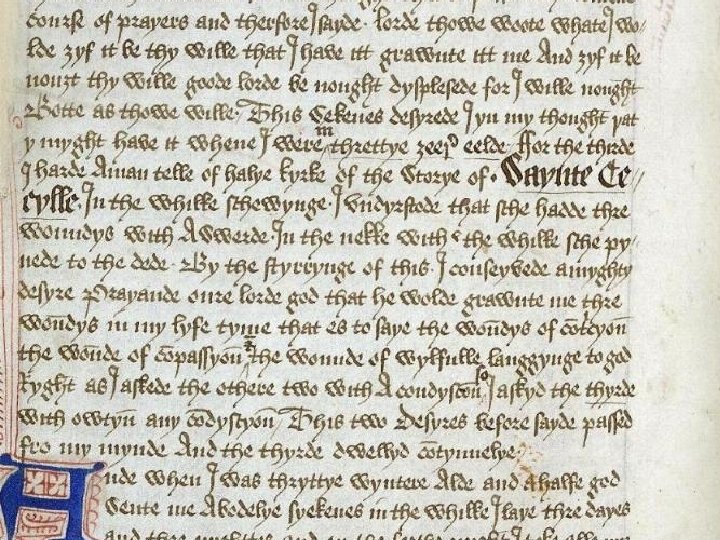 course of prayers and therfore I sayde. lorde thowe woote whate I wo-
lde zyf it be thy wille that I have itt grawnte itt me And zyf it be
nouzt thy wille goode lorde be nought dysplesede for I wille nought
Botte as thowe wille. This Sekenes desyrede I yn my thought yat
y myght have it whene I were threttye zeeꝛ eelde. ffor the thirde
I harde A man telle of halye kyrke of the Storye of. Saynte Ce-
cylle. In the whilke schewynge. I vndyrstode that sche hadde thre
woundys with A swerde. In the nekke with the whilke sche py-
nede to the dede. By the styrrynge of this. I conseyvede a myghty
desyre Prayande oure lorde god that he wolde grawnte me thre
wo̅ndys in my lyfe tyme that es to saye the wo̅ndys of co̅tcyon
the wo̅nde of co̅passyon & the wounde of wylfulle langgynge to god
Ryght as I askede the othere two with A condyscon so I askyd the thyrde
with owtyn any co̅dystyon / This two Desyres before sayde passed
fro my mynde And the thyrde dwellyd co̅tynuelye
nde when I was thryttye wyntere Alde and A halfe god
Sente me A bodelye syekenes in the whilke I laye thre dayes
and thre nyghttes and on the